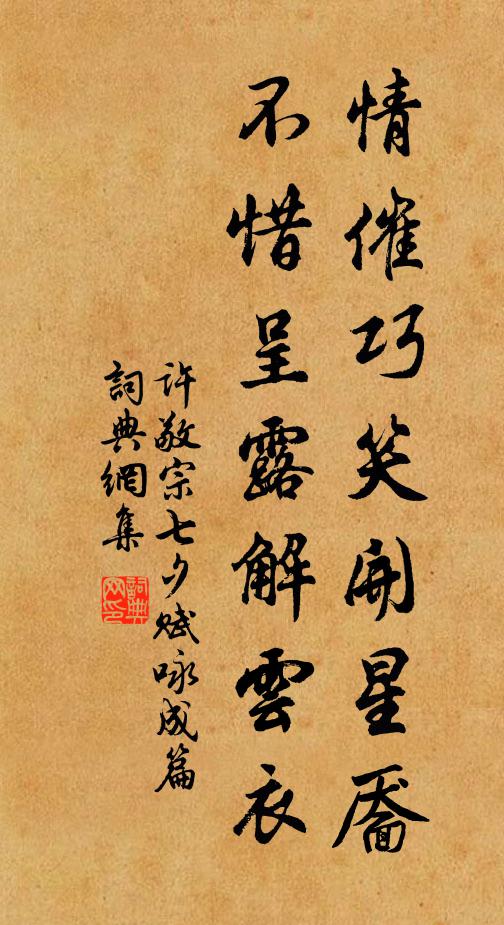 情催巧笑開星靨
不惜呈露解雲衣
許敬宗七夕賦咏成篇
詞典網集
詞典網印